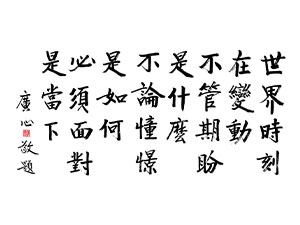 世界時刻
在變動
不管期盼
是什麼
不論憧憬
是如何
必須面對
是當下
廣心敬題